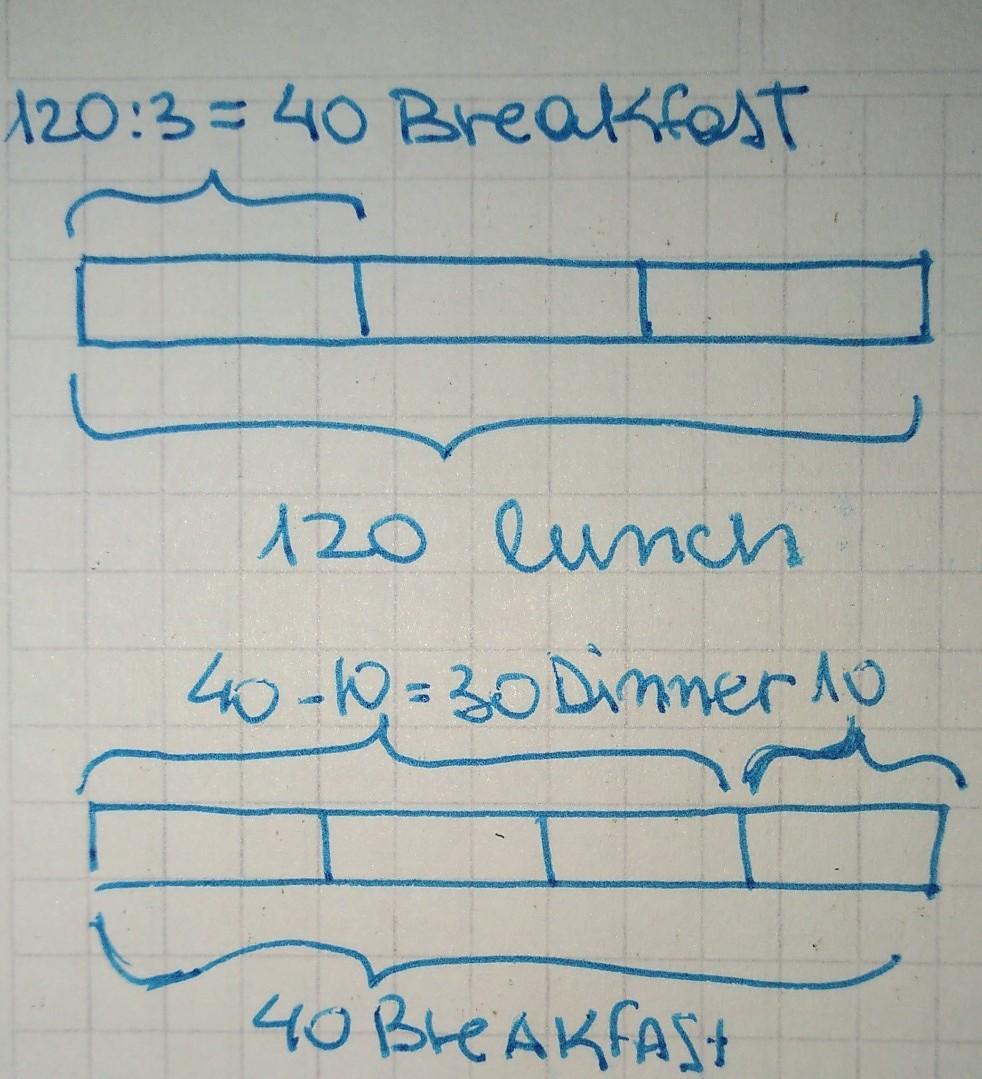 120:3=40 Breakfast
120 lunch
40-10=30 Dinner 10
40 BreAKfASt